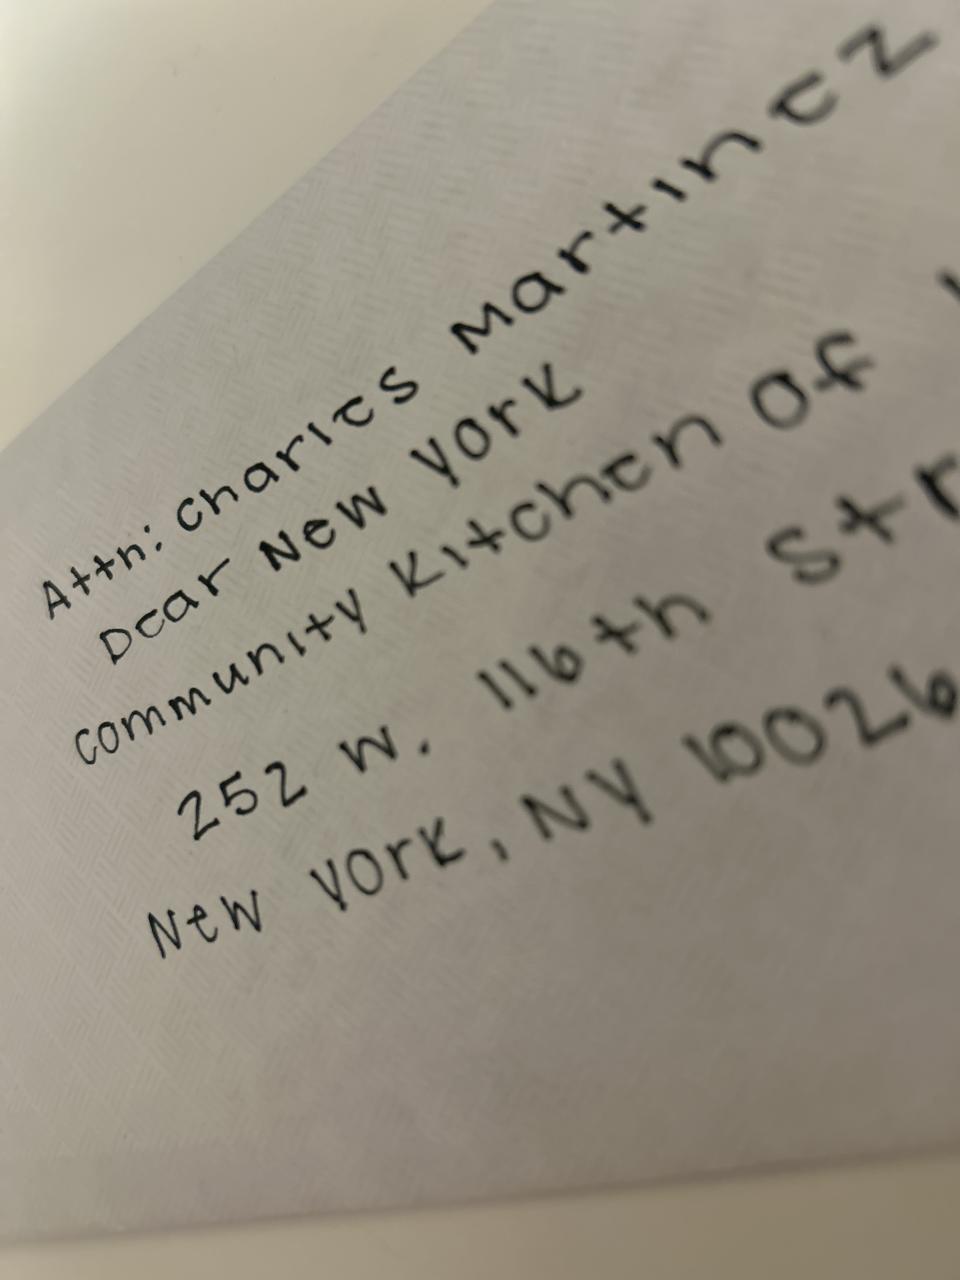 Attn: Charles Martinez
Dear New York
Community Kitchen of
252 W. 116th Str
New York, NY 10026